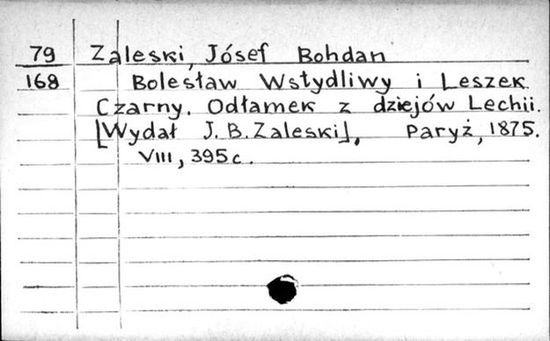 79 Zaleski, Jósef Bohdan
168 Bolesław Wstydliwy i Leszek
Czarny. Odłamek z dziejów Lechii.
[Wydał J. B. Zaleski], Paryż, 1875.
VIII, 395 c.